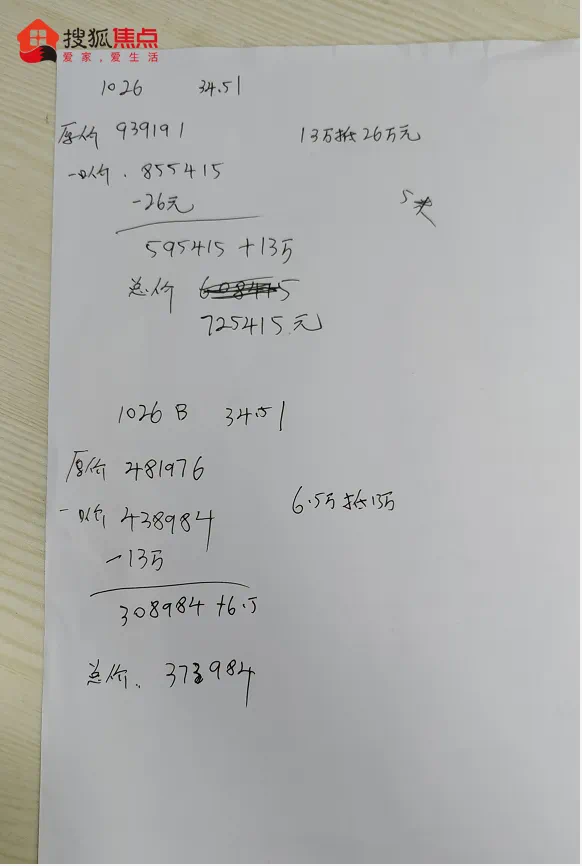 搜狐焦点
爱家,爱生活
1026 34.51
原价 939191 13万抵26万元
一口价.855415
-26元 5天
595415+13万
总价
725415.元
1026 B 34.51
原价 481976
一口价 438984 6.5万抵13万
-13万
308984+6.5
总价. 373984